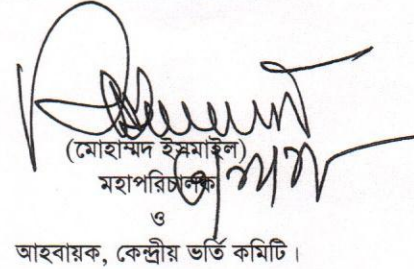 (মোহাম্মদ ইসমাইল)
মহাপরিচালক
ও
আহবায়ক, কেন্দ্রীয় ভর্তি কমিটি।